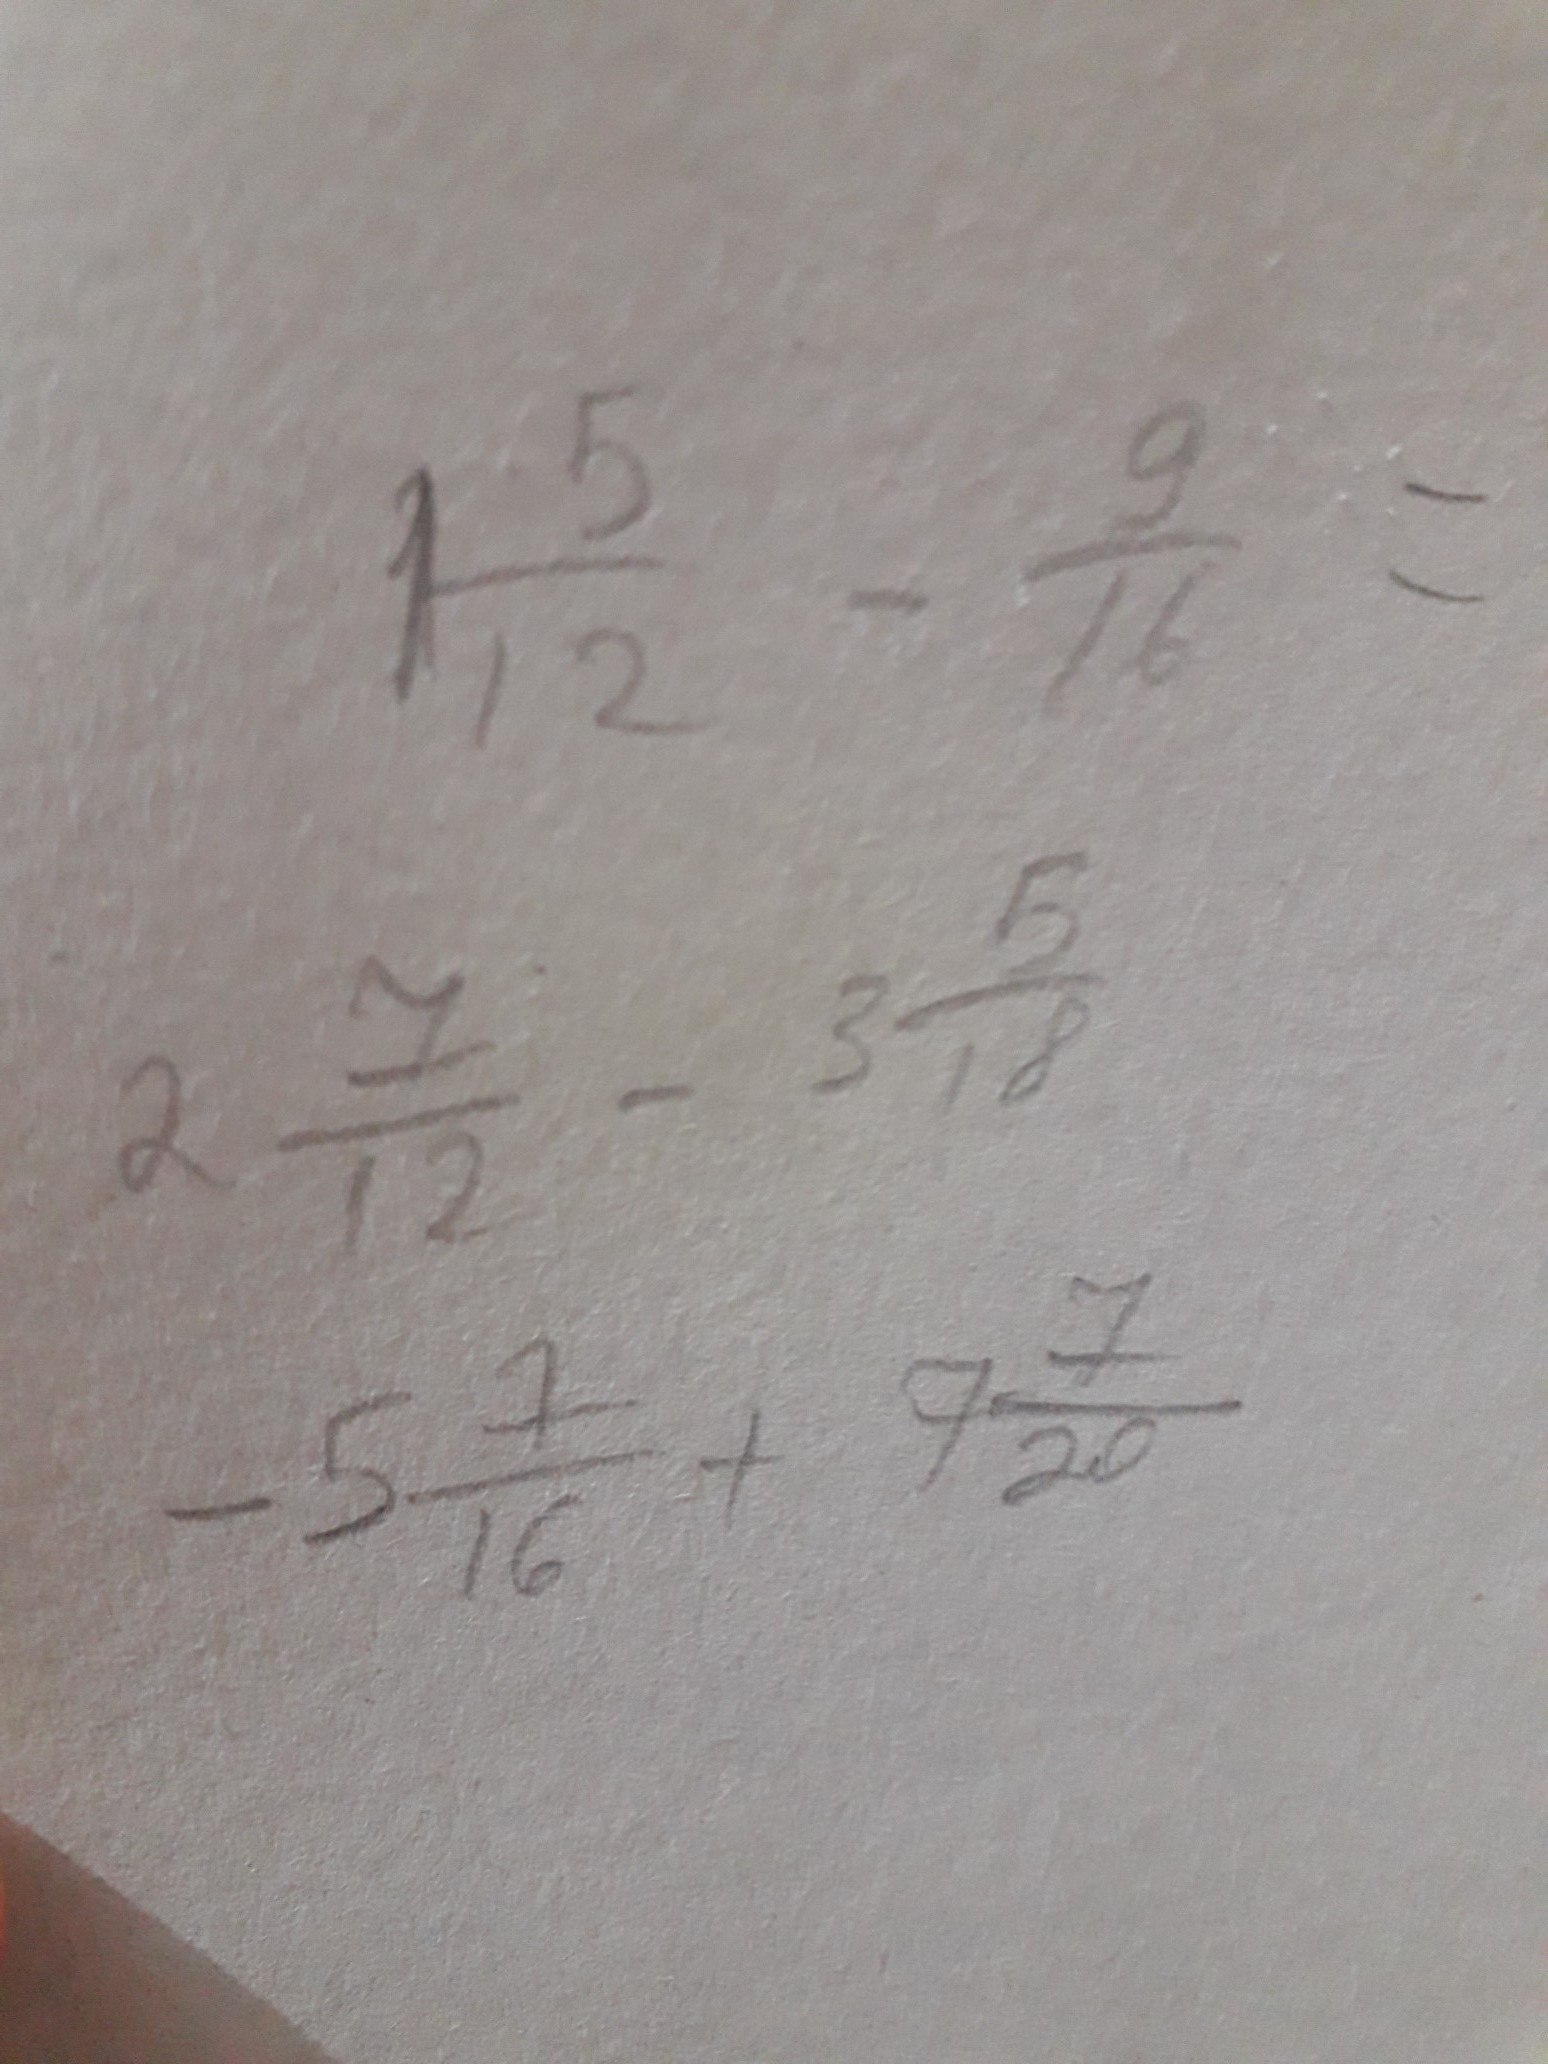 1 5/12 - 9/16 =
2 7/12 - 3 5/18
- 5 1/16 + 7 7/20